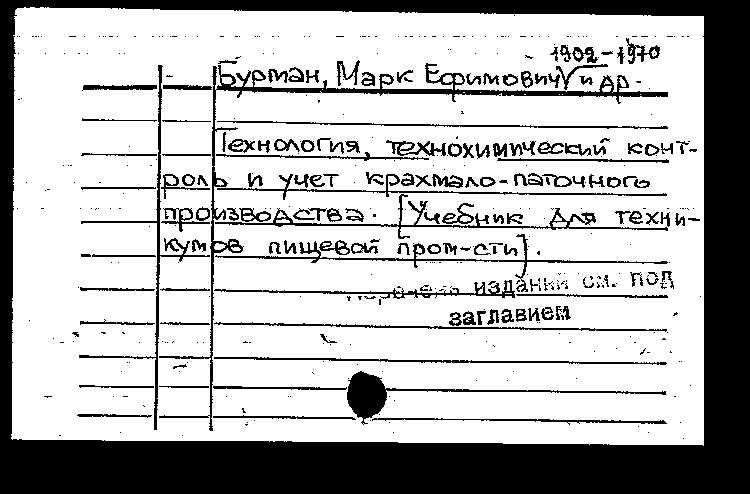 1902-1970
Бурман, Марк Ефимович √ и др.
Технология, технохимический конт-
роль и учет крахмало-паточного
производства. [Учебник для техни-
кумов пищевой пром-сти].
Перечень изданий см. под
заглавием